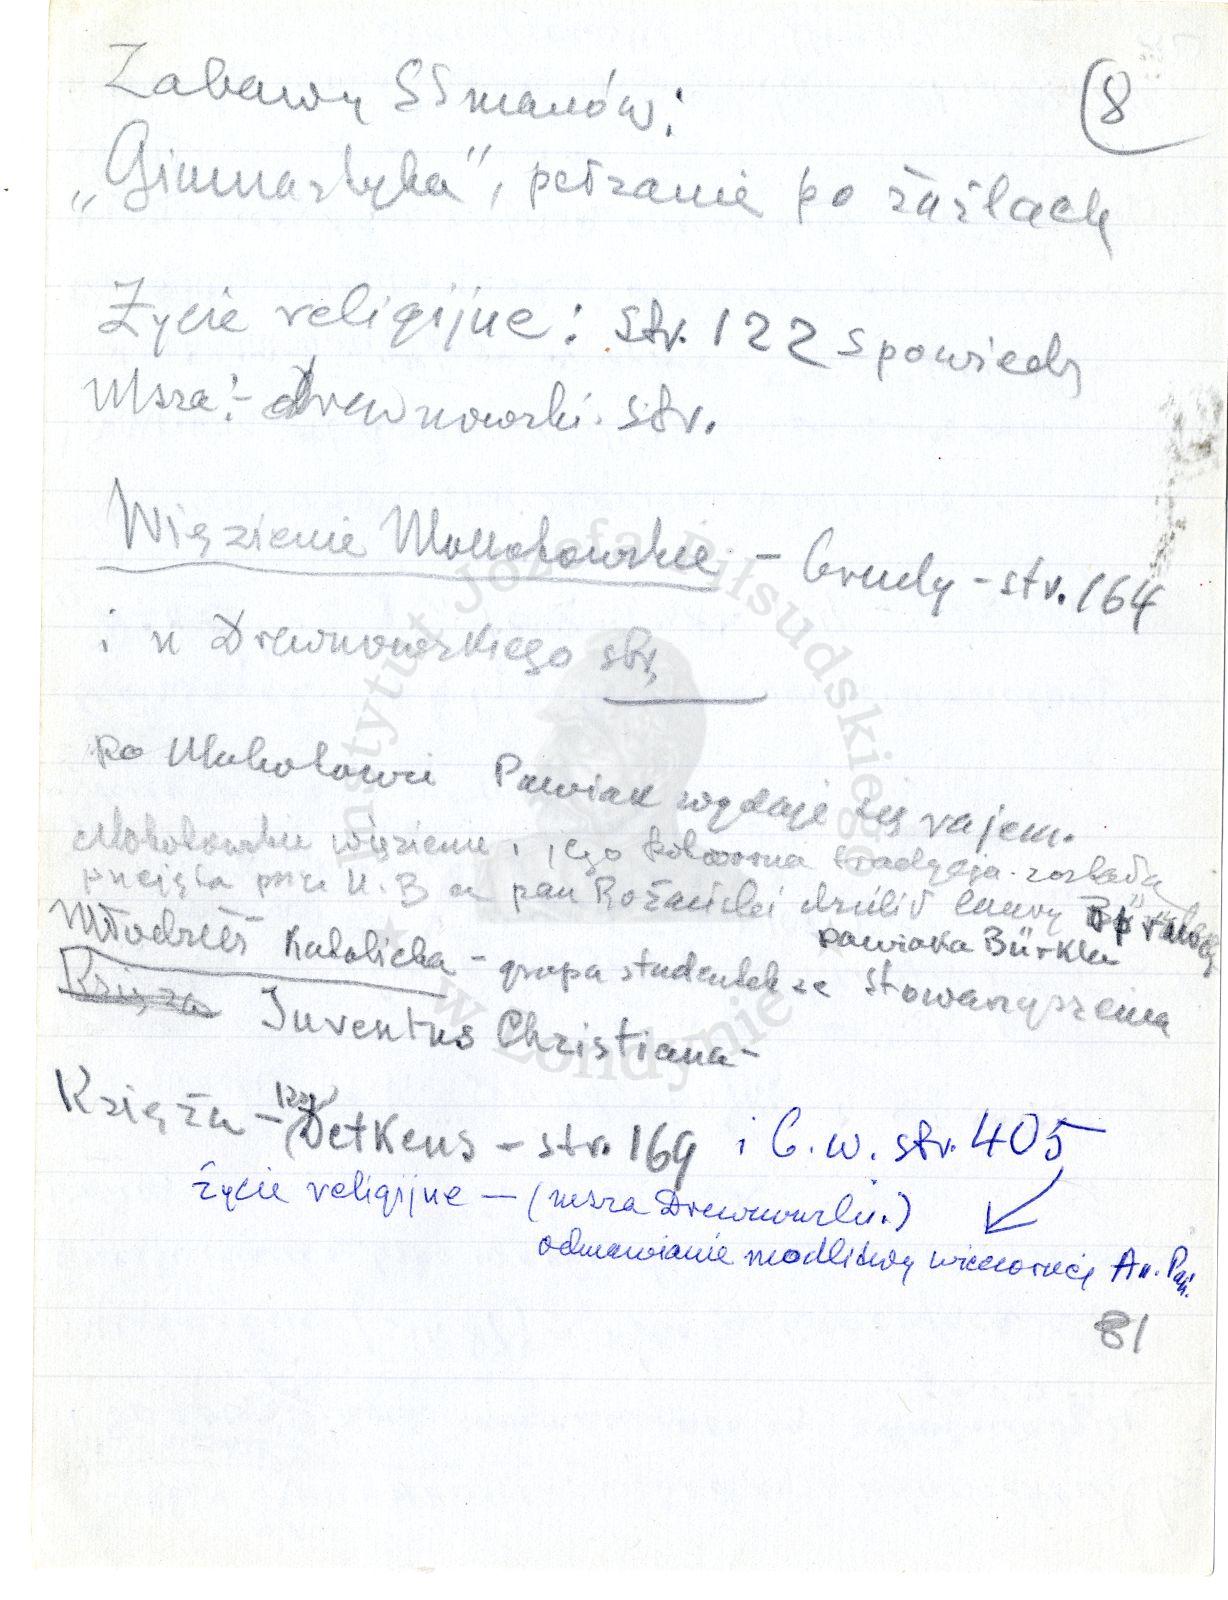 8
Zabawy SSmanów:
„Gimnastyka", pełzanie po żużlach
Życie religijne: str. 122 spowiedź
Msza: - Drewnowski. str.
Więzienie Mokotowskie - Grudy - str. 164
i u Drewnowskiego str.
po Mokotowie Pawiak wydaje się rajem.
Mokotowskie więzienie i jego potworna tradycja. została
przejęta przez U.B a pan Różański dzielić
pawiaka Bürkla
Młodzież Katolicka - grupa studentek ze Stowarzyszenia
Księża Juventus Christiana -
Księża - (ksy) Detkens - str. 169 i C. w. str. 405
życie religijne - (msza Drewnowski.)
odmawianie modlitwy wieczornej An. Pań.
81
Instytut Józefa Piłsudskiego
w Londynie